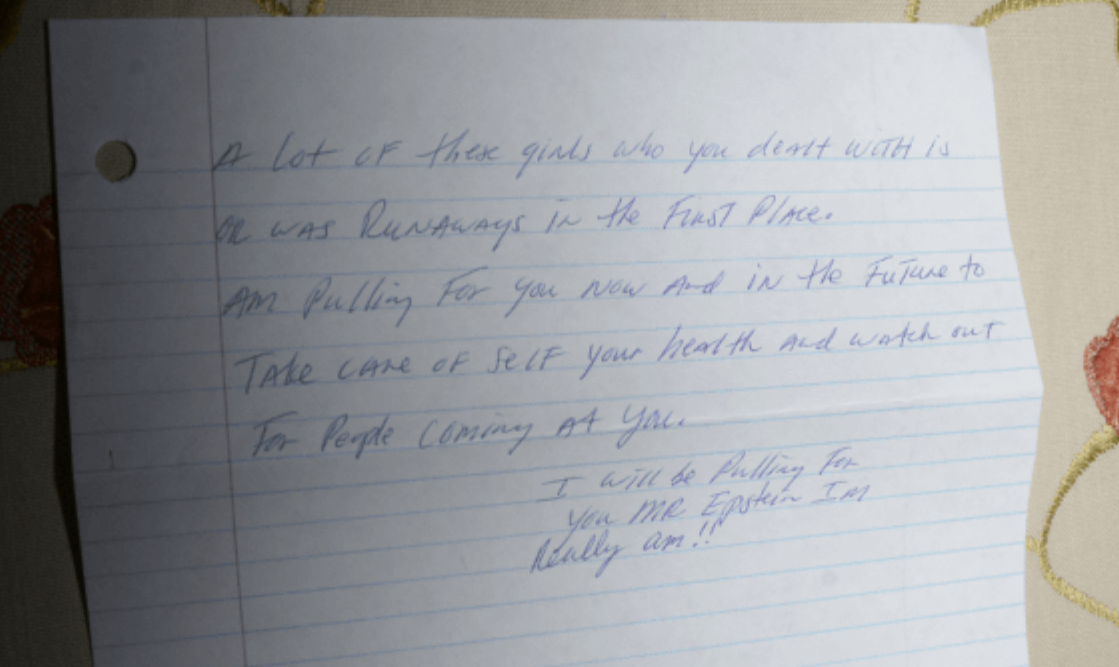 A lot of these girls who you dealt with is
OR WAS RUNAWAYS in the FIRST PLACE.
AM Pulling For you NOW And iN the FuTuRe to
TAke CARe oF SelF your heAlth ANd watch out
For People Coming At You.
I will be Pulling For
you MR Epstein IM
Really am!!